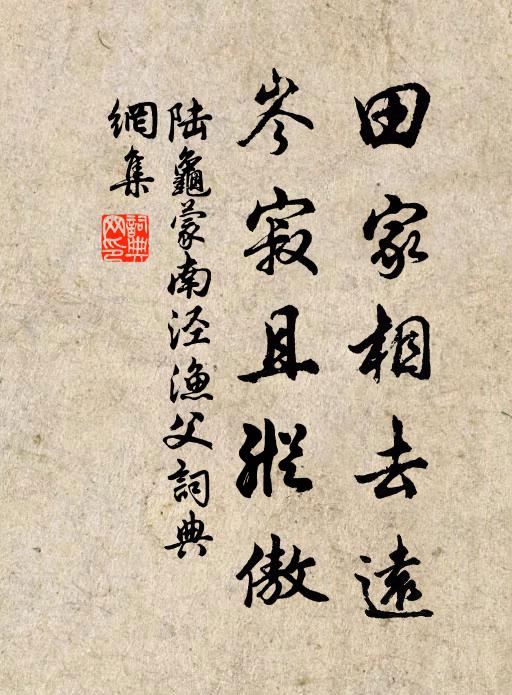 田家相去遠
岑寂且縱傲
陆龜蒙南泾漁父詞典
網集
詞典網印